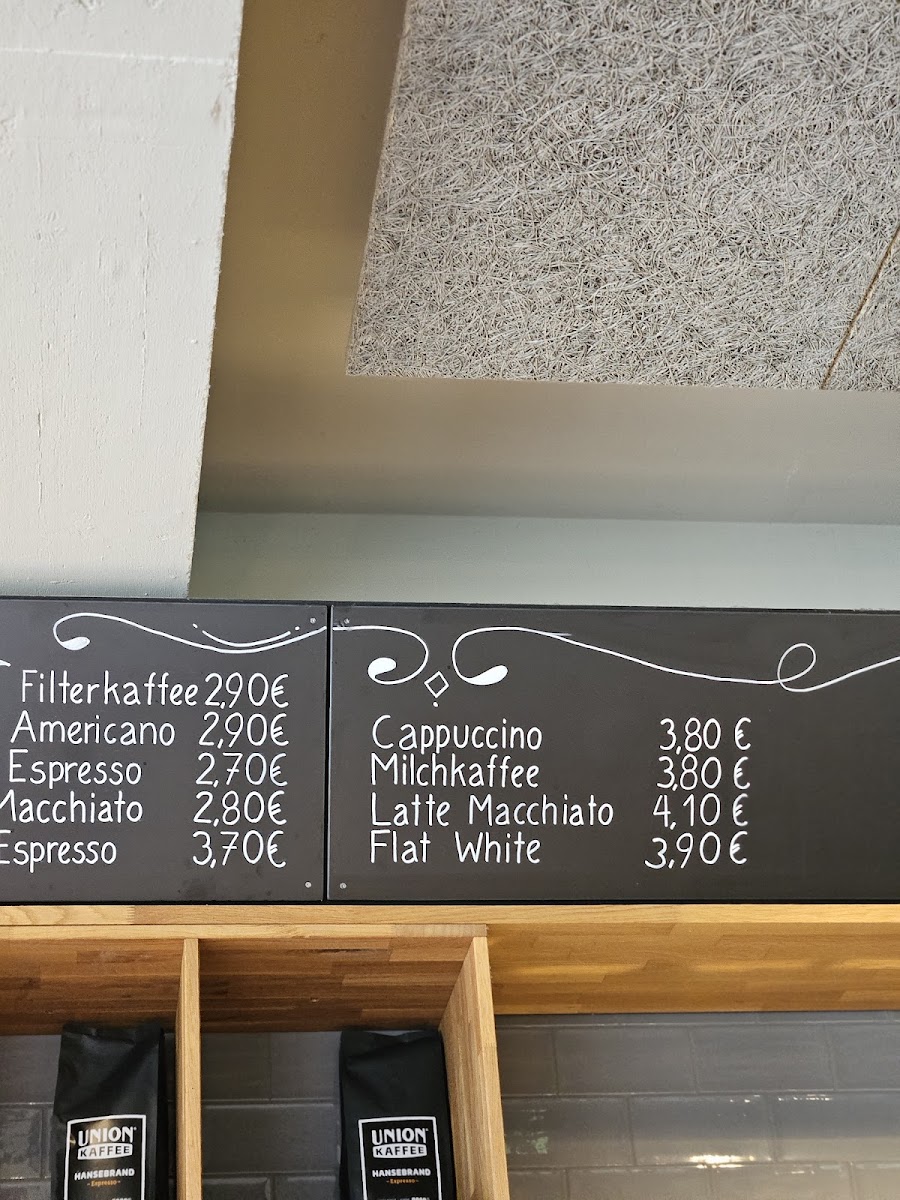 Filterkaffee 2,90€
Americano 2,90€
Espresso 2,70€
Macchiato 2,80€
Espresso 3,70€
Cappuccino 3,80 €
Milchkaffee 3,80 €
Latte Macchiato 4,10 €
Flat White 3,90€
UNION
KAFFEE
HANSEBRAND
- Espresso -
UNION
KAFFEE
HANSEBRAND
- Espresso -